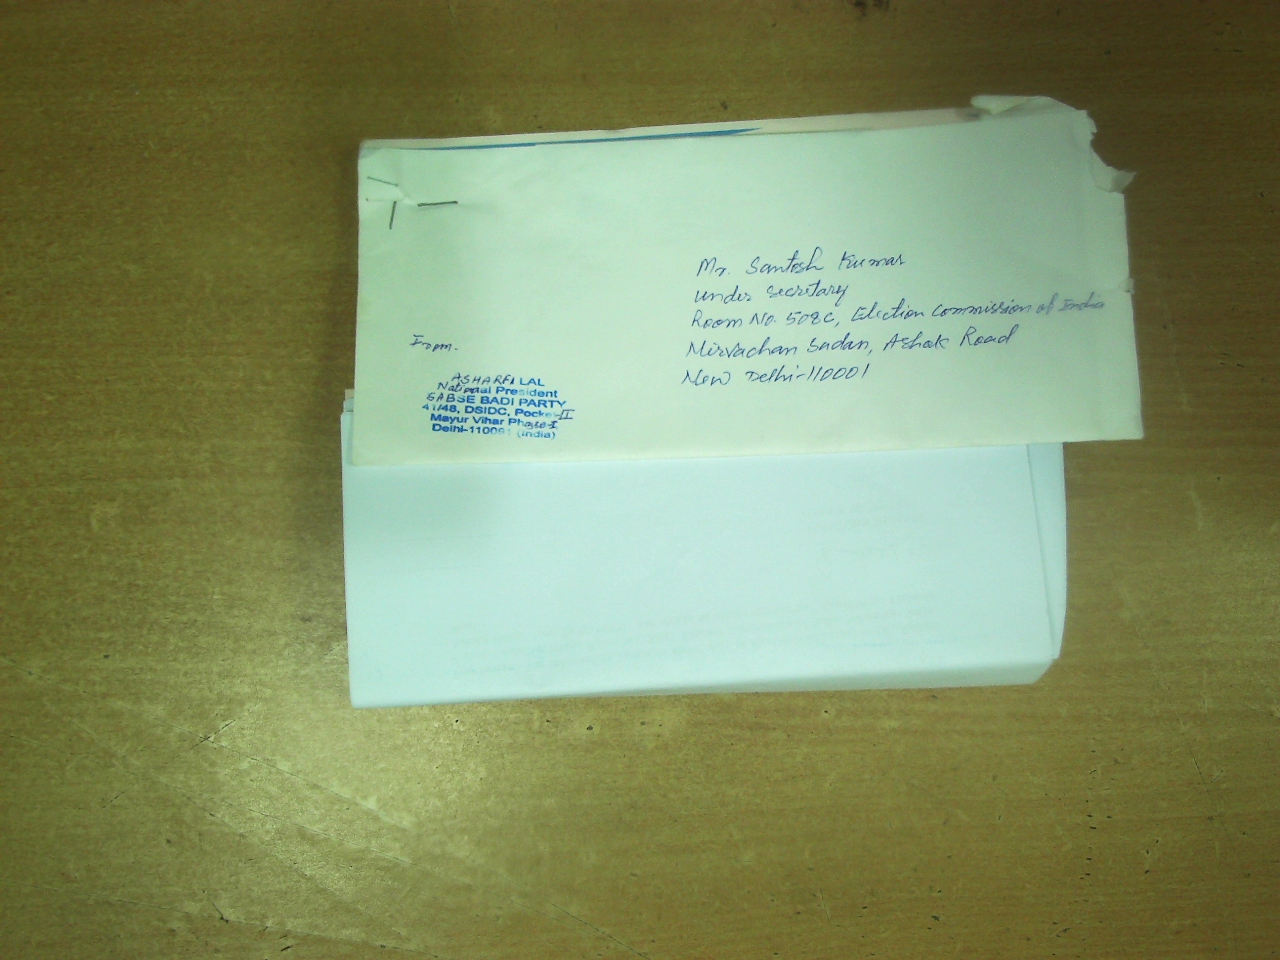 Mr. Santosh Kumar
Under Secretary
Room No. 508C, Election Commission of India
Nirvachan Sadan, Ashok Road
New Delhi-110001
From.
ASHARFI LAL
National President
SABSE BADI PARTY
41/48, DSIDC, Pocket-II
Mayur Vihar Phase-I
Delhi-110091 (India)